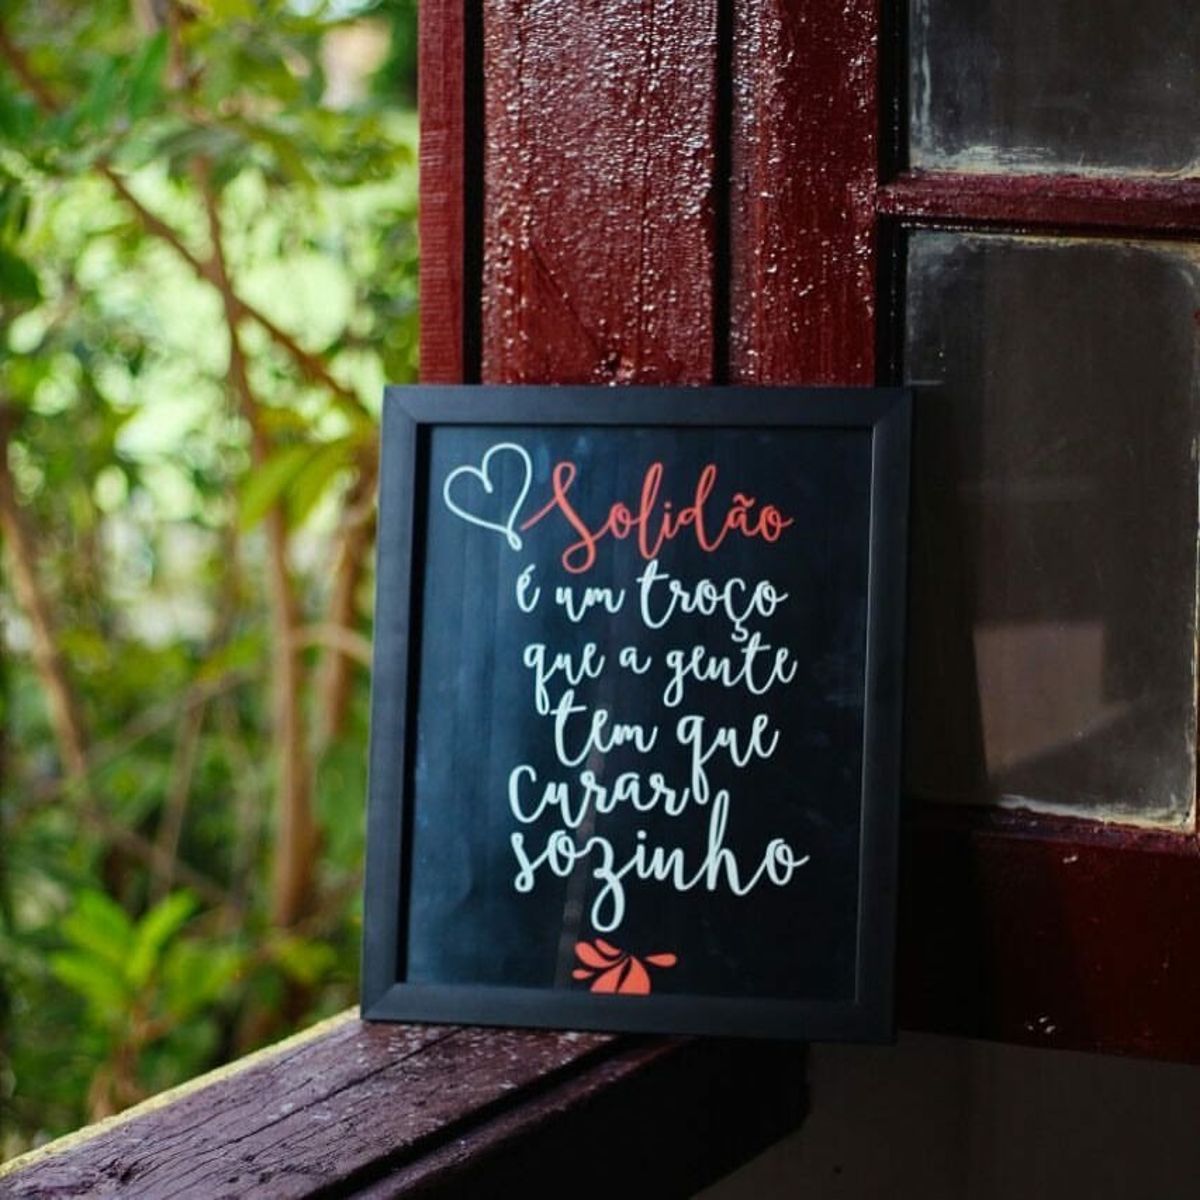 Solidão
é um troço
que a gente
tem que
curar
sozinho